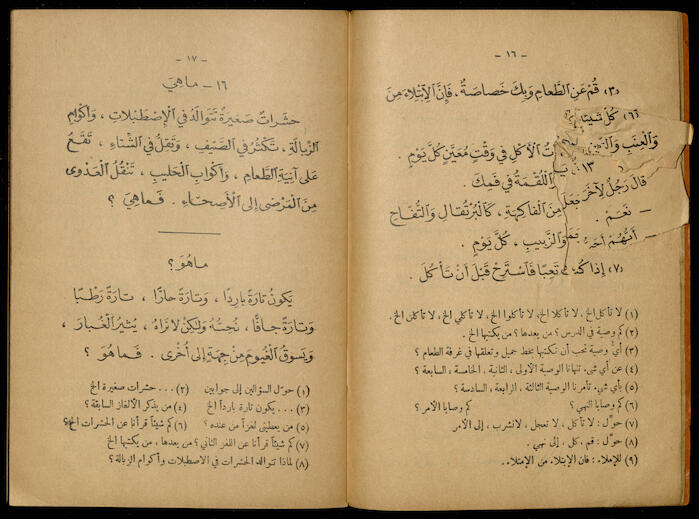 - ١٦ -
(٣) قُمْ عَنِ الطَّعَامِ وَبِكَ خَصَاصَةٌ، فَإِنَّ الْإِبْتِلَاءَ مِنَ
(٦) كُلْ شَيْئًا
وَالْعِنَبِ وَالتِّينِ
تُ الْأَكْلِ فِي وَقْتٍ مُعَيَّنٍ كُلَّ يَوْمٍ .
١٣
اللُّقْمَةُ فِي فَمِكَ .
قَالَ رَجُلٌ لِآخَرَ
مِنَ الْفَاكِهَةِ، كَالْبُرْتُقَالِ وَالتُّفَّاحِ
— نَعَمْ .
— أَتُّهُمْ
وَالزَّبِيبِ ، كُلَّ يَوْمٍ .
(٧) إِذَا كُنْتَ تَعِبًا فَاسْتَرِحْ قَبْلَ أَنْ تَأْكُلَ .
(١) لا تأكل الخ، لا تأكلا الخ، لا تأكلوا الخ، لا تأكلي الخ، لا تأكلن الخ.
(٢) كم وصية في الدرس؟ من يعدها؟ من يكتبها الخ.
(٣) أيّ وصية تحب أن نكتبها بخط جميل ونعلقها في غرفة الطعام؟
(٤) عن أي شيء تنهانا الوصية الأولى، الثانية، الخامسة، السابعة؟
(٥) بأي شيء تأمرنا الوصية الثالثة، الرابعة، السادسة؟
(٦) كم وصايا النهي؟ كم وصايا الأمر؟
(٧) حوّل: لا تأكل، لا تعجل، لا تشرب، إلى الأمر
(٨) حوّل: قم، كل، إلى نهي.
(٩) للإملاء: فإن الإبتلاء من الإمتلاء.
- ١٧ -
١٦ - مَاهِيَ
حَشَرَاتٌ صَغِيرَةٌ تَتَوَالَدُ فِي الْإِصْطَبْلَاتِ ، وَأَكْوَامِ
الزِّبَالَةِ ، تَكْثُرُ فِي الصَّيْفِ ، وَتَقِلُّ فِي الشِّتَاءِ ، تَقَعُ
عَلَى آنِيَةِ الطَّعَامِ ، وَأَكْوَابِ الْحَلِيبِ ، تَنْقُلُ الْعَدْوَى
مِنَ الْمَرْضَى إِلَى الْأَصِحَّاءِ . فَمَاهِيَ ؟
مَاهُوَ ؟
يَكُونُ تَارَةً بَارِدًا ، وَتَارَةً حَارًّا ، تَارَةً رَطْبًا
وَتَارَةً جَافًّا ، نُحِسُّهُ وَلٰكِنْ لَا نَرَاهُ ، يُثِيرُ الْغُبَارَ ،
وَيَسُوقُ الْغُيُومَ مِنْ جِهَةٍ إِلَى أُخْرَى . فَمَا هُوَ ؟
(١) حوّل السؤالين إلى جوابين (٢) ... حشرات صغيرة الخ
(٣) ... يكون تارة بارداً الخ (٤) من يذكر الألغاز السابقة؟
(٥) من يعطيني لغزاً من عنده؟ (٦) كم شيئاً قرأنا عن الحشرات الخ؟
(٧) كم شيئاً قرأنا عن اللغز الثاني؟ من يعدها، من يكتبها الخ
(٨) لماذا تتوالد الحشرات في الاصطبلات وأكوام الزبالة؟